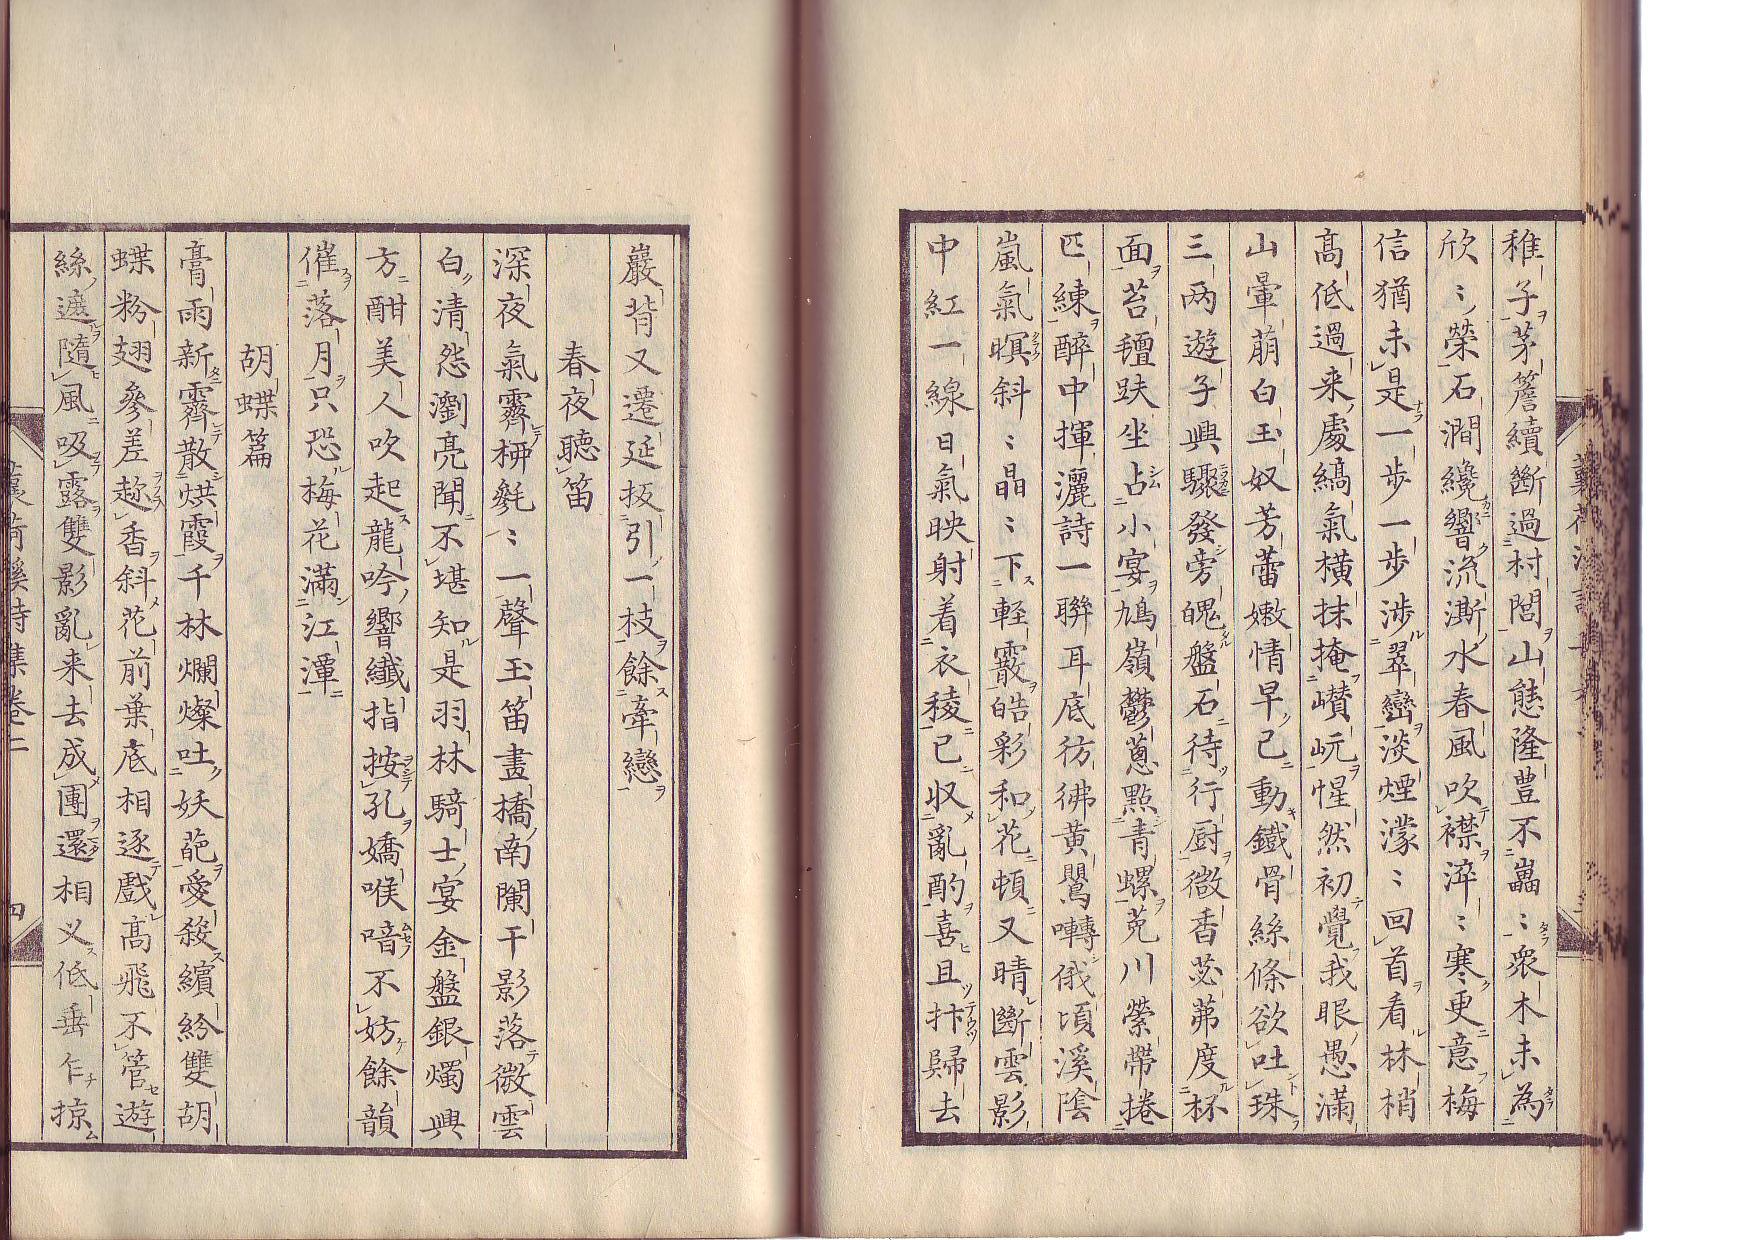 稚子茅簷續斷過村閭山態隆豊不巉〻衆木未為
欣〻榮石澗纔響流澌水春風吹襟淬〻寒更意梅
信猶未是一步一步渉翠巒淡煙濛〻回首看林梢
高低過来處縞氣横抹掩巑岏惺然初覺我眼愚滿
山暈萠白玉奴芳蕾嫩情早已動鐵骨絲條欲吐珠
三两遊子興驟發旁皅盤石待行厨微香苾茀度杯
面苔氊趺坐占小宴鳩嶺鬱蔥點青螺菟川縈帶捲
匹練醉中揮灑詩一聯耳底彷彿黄鸎囀俄頃溪陰
嵐氣暝斜〻晶〻下輕霰皓彩和花頓又晴斷雲影
中紅一線日氣映射着衣稜已収亂酌喜且抃歸去
巖背又遷延扳引一枝餘牽戀
春夜聽笛
深夜氣霽柳毿〻一聲玉笛畫橋南闌干影落微雲
白清怨瀏亮聞不堪知是羽林騎士宴金盤銀燭興
方酣美人吹起龍吟響纖指按孔嬌喉喑不妨餘韻
催落月只恐梅花滿江潭
胡蝶篇
膏雨新霽散烘霞千林爛燦吐妖葩愛殺繽紛雙胡
蝶粉翅參差趂香斜花前葉底相逐戲高飛不管遊
絲遮隨風吸露雙影亂来去成團還相乂低垂乍掠
蘘荷溪詩集卷二
四